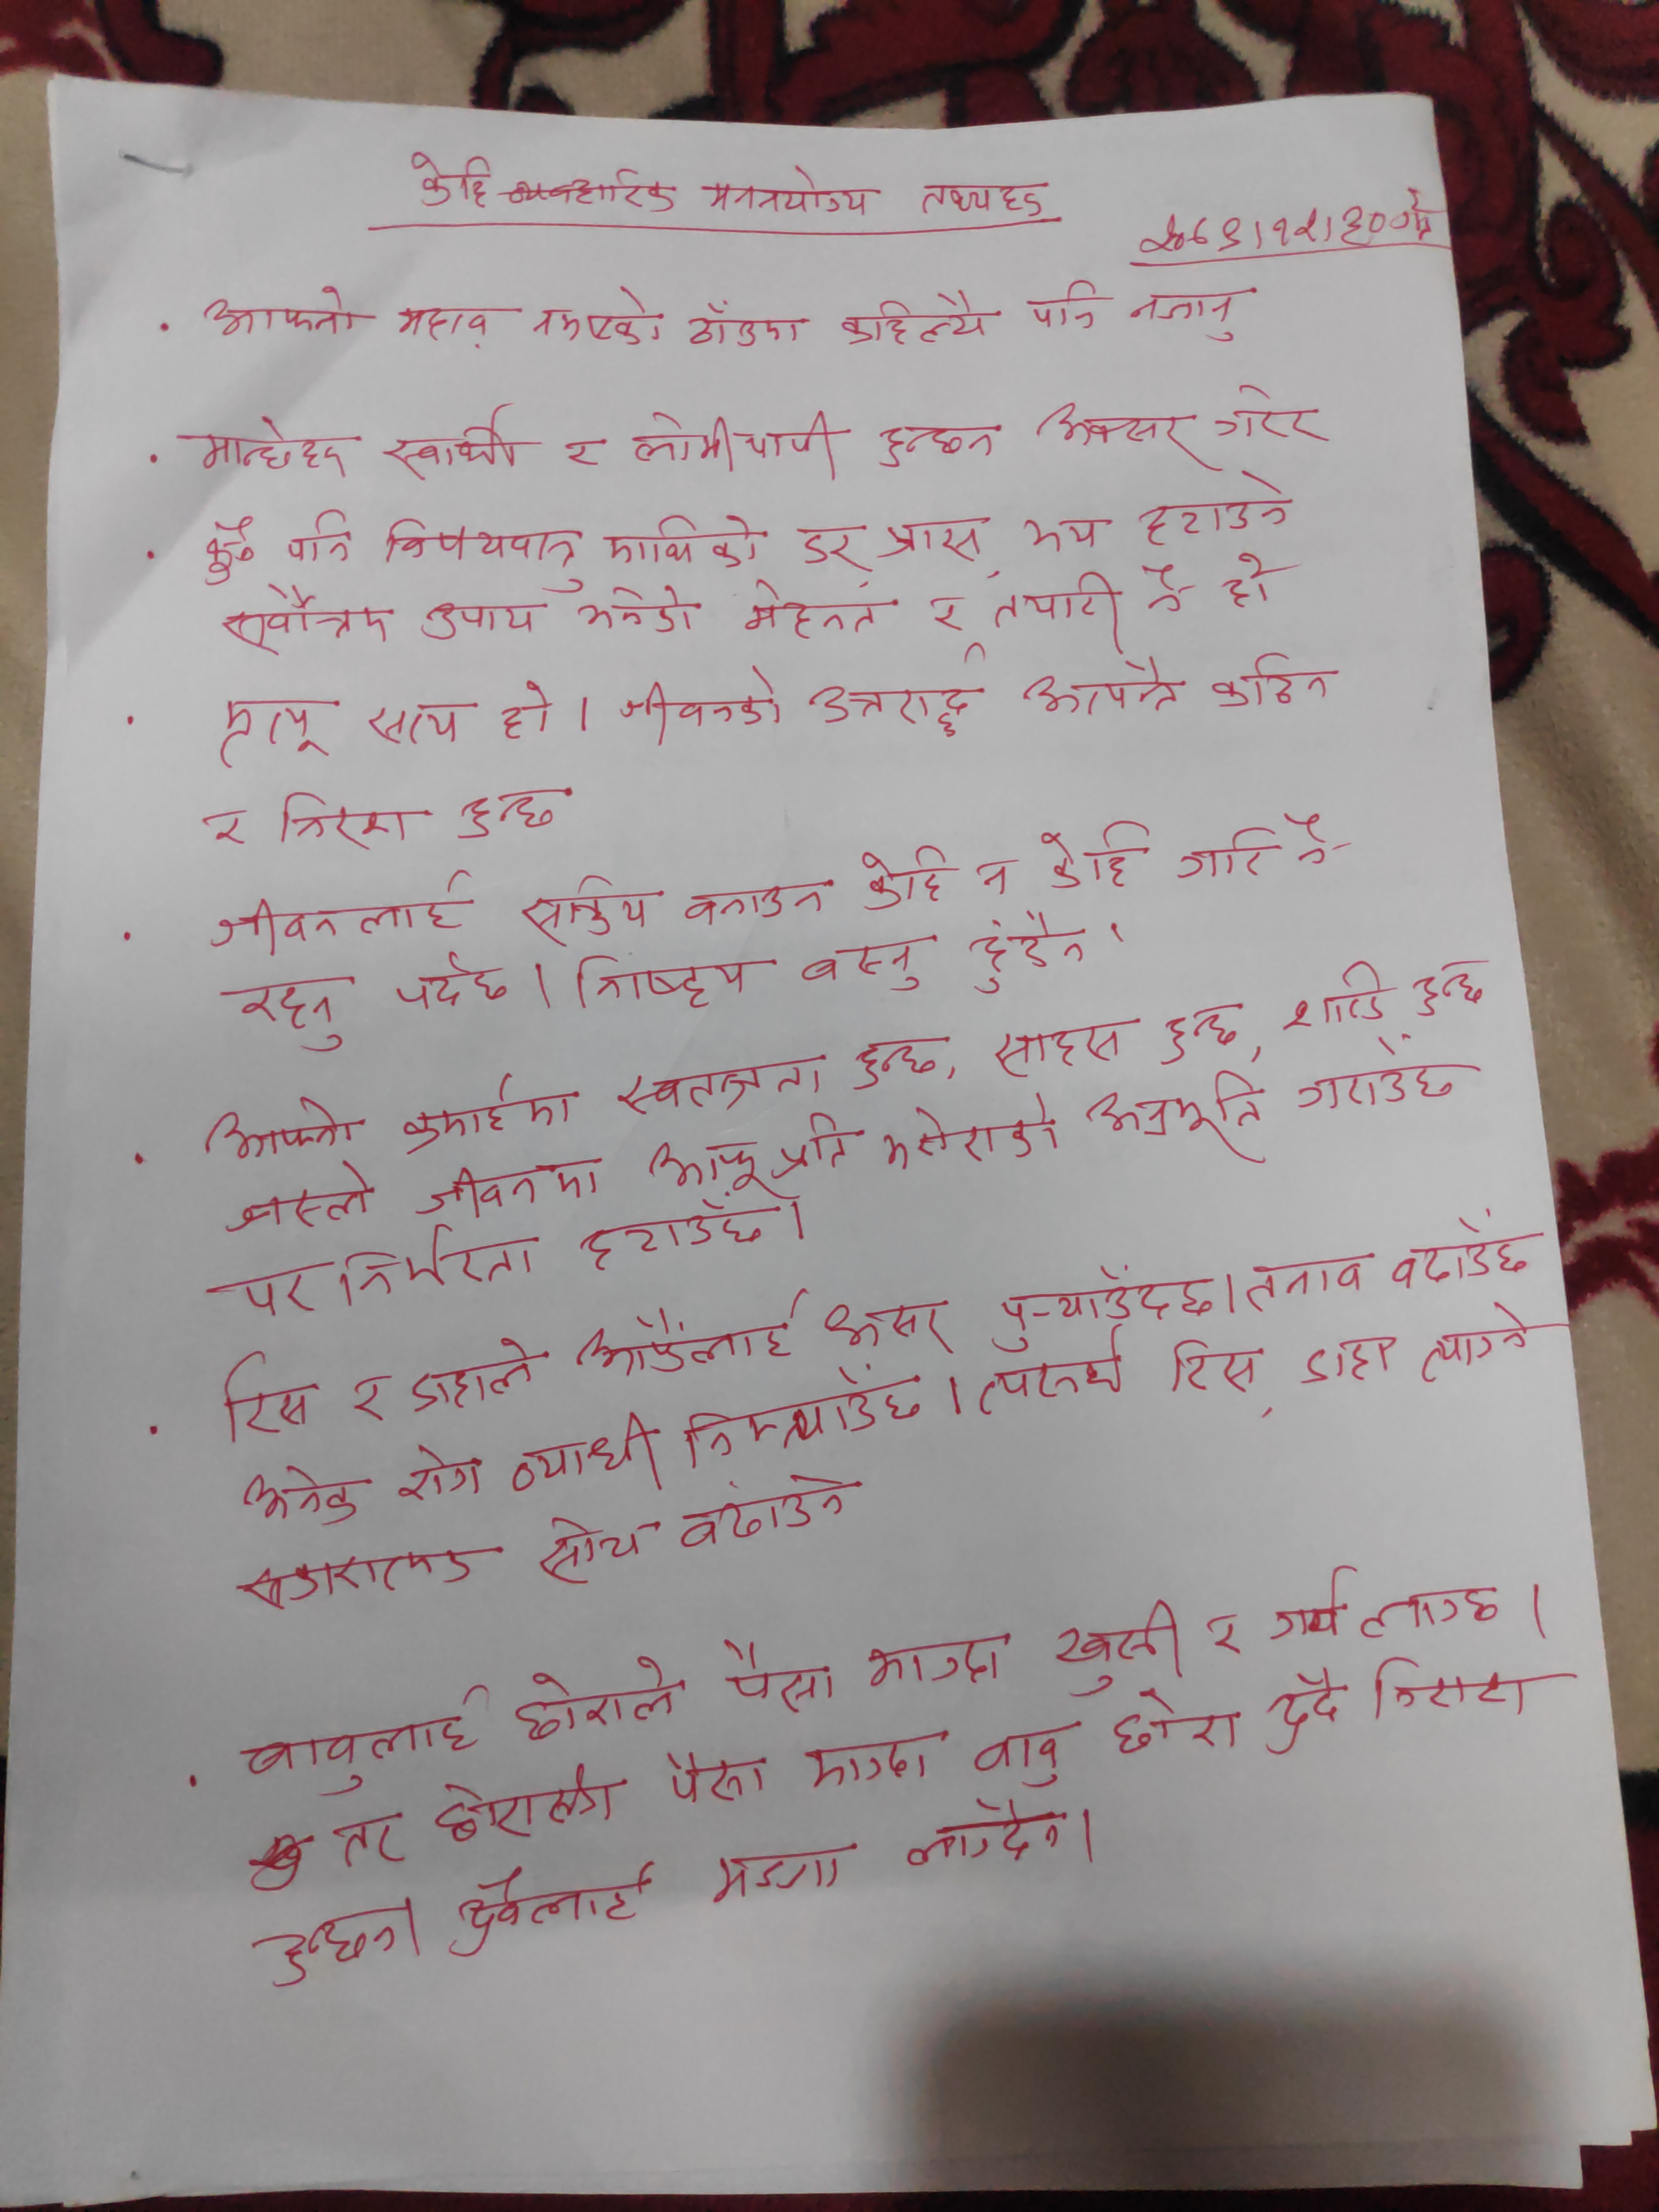 केहि व्यवहारिक मननयोग्य तथ्यहरु
२०७९।१२।३०गते
• आफ्नो महत्व नभएको ठाँउमा कहिल्यै पनि नजानु
• मान्छेहरु स्वार्थी र लोभीपापी हुन्छन अक्सर गरेर
• कुनै पनि विषयवस्तु माथिको डर, त्रास, भय हटाउने
सर्वोत्तम उपाय भनेको मेहनत र तयारी नै हो
• मृत्यू सत्य हो। जीवनको उत्तरार्द्ध अत्यन्तै कठिन
र निरस हुन्छ
• जीवनलाई सक्रिय बनाउन केहि न केहि गरि नै
रहनु पर्दछ। निष्क्रिय बस्नु हुँदैन।
• आफ्नो कमाईमा स्वतन्त्रता हुन्छ, साहस हुन्छ, शक्ति हुन्छ
जस्ले जीवनमा आफू प्रति भरोसाको अनुभूति गराउँछ
पर निर्भरता हटाउँछ।
• रिस र डाहाले आफैंलाई असर पु-याउँदछ। तनाव बढाउँछ
अनेक रोग व्याधी निम्त्याउँछ। त्यसर्थ रिस, डाहा त्याग्ने
सकारात्मक सोच बढाउने
• बाबुलाई छोराले पैसा माग्दा खुसी र गर्व लाग्छ।
तर छोरासंग पैसा माग्दा बाबु छोरा दुवै निराश
हुन्छन। दुवैलाई मज्जा लाग्दैन।